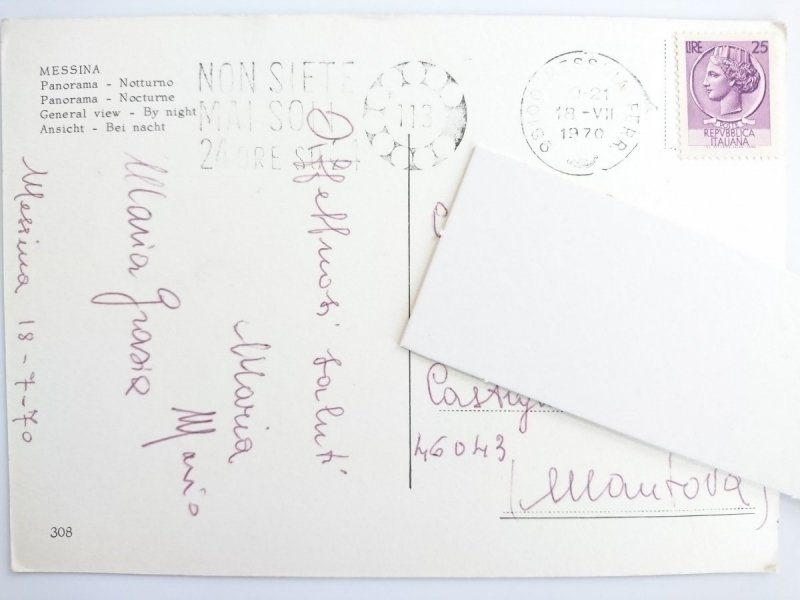 MESSINA
Panorama - Notturno
Panorama - Nocturne
General view - By night
Ansicht - Bei nacht
NON SIETE
MAI SOLI
24 ORE SU 24
113
98100 MESSINA FERR.
-21
18-VII
1970
LIRE 25
POSTE
REPVBBLICA
ITALIANA
Messina 18-7-70
Affettuosi saluti
Maria
Mario
Maria Grazia
46043
(Mantova)
308